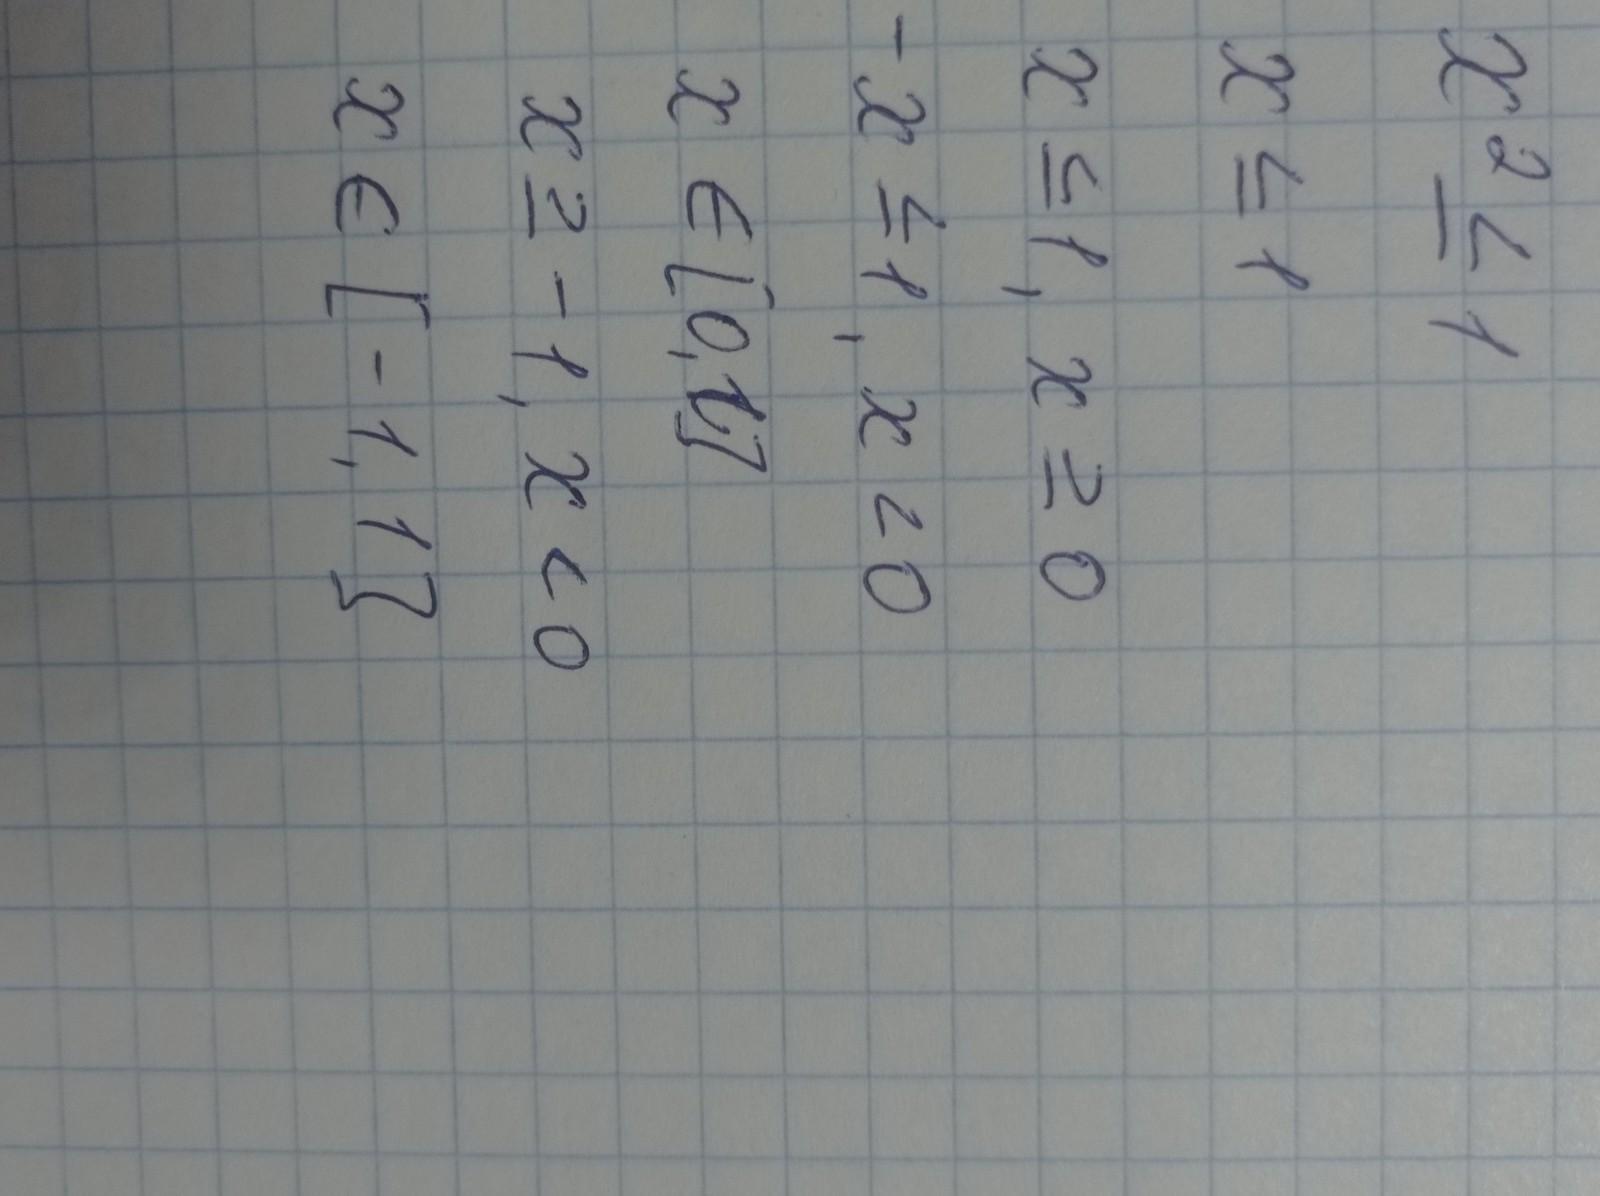 x² ≤ 1
x ≤ 1
x ≤ 1, x ≥ 0
-x ≤ 1, x < 0
x ∈ [0, 1]
x ≥ -1, x < 0
x ∈ [-1, 1]